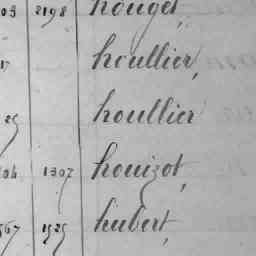 03 2198 houget,
17 houllier,
25 houllier
04 1307 houizot,
567 1925 hubert,